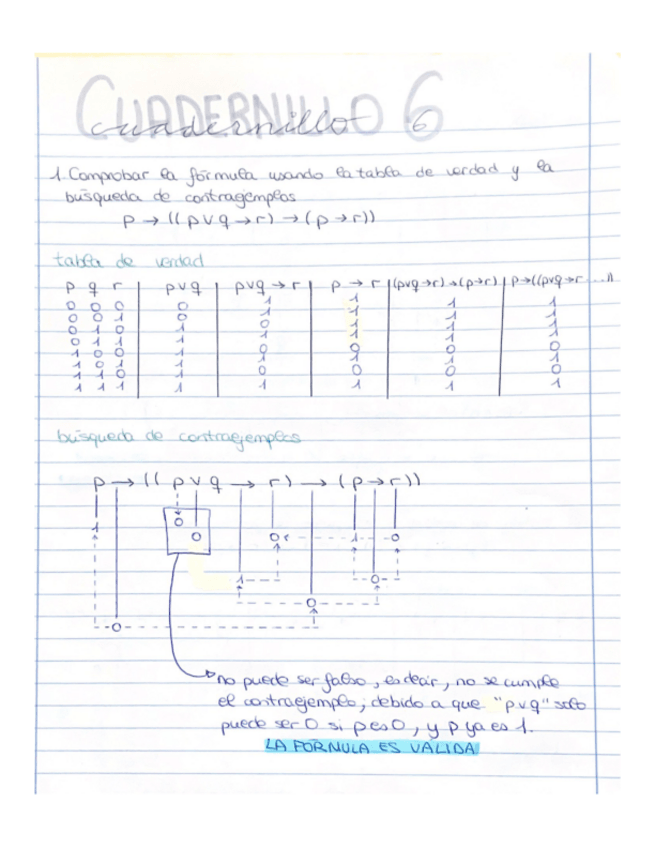 CUADERNILLO 6
cuadernillo 6
1. Comprobar la fórmula usando la tabla de verdad y la
búsqueda de contraejemplos
p → ((p ∨ q → r) → (p → r))
tabla de verdad
p q r | p ∨ q | p ∨ q → r | p → r | (p∨q→r)→(p→r) | p→((p∨q→r ....))
0 0 0 0 1 1 1 1
0 0 1 0 1 1 1 1
0 1 0 1 0 1 1 1
0 1 1 1 1 1 1 1
búsqueda de contraejemplos
p → (( p ∨ q → r) → (p → r))
0
1 0 0 1 0
1 0
0
0
no puede ser falso, es decir, no se cumple
el contraejemplo, debido a que "p∨q" solo
puede ser 0 si p es 0, y p ya es 1.
LA FÓRMULA ES VÁLIDA